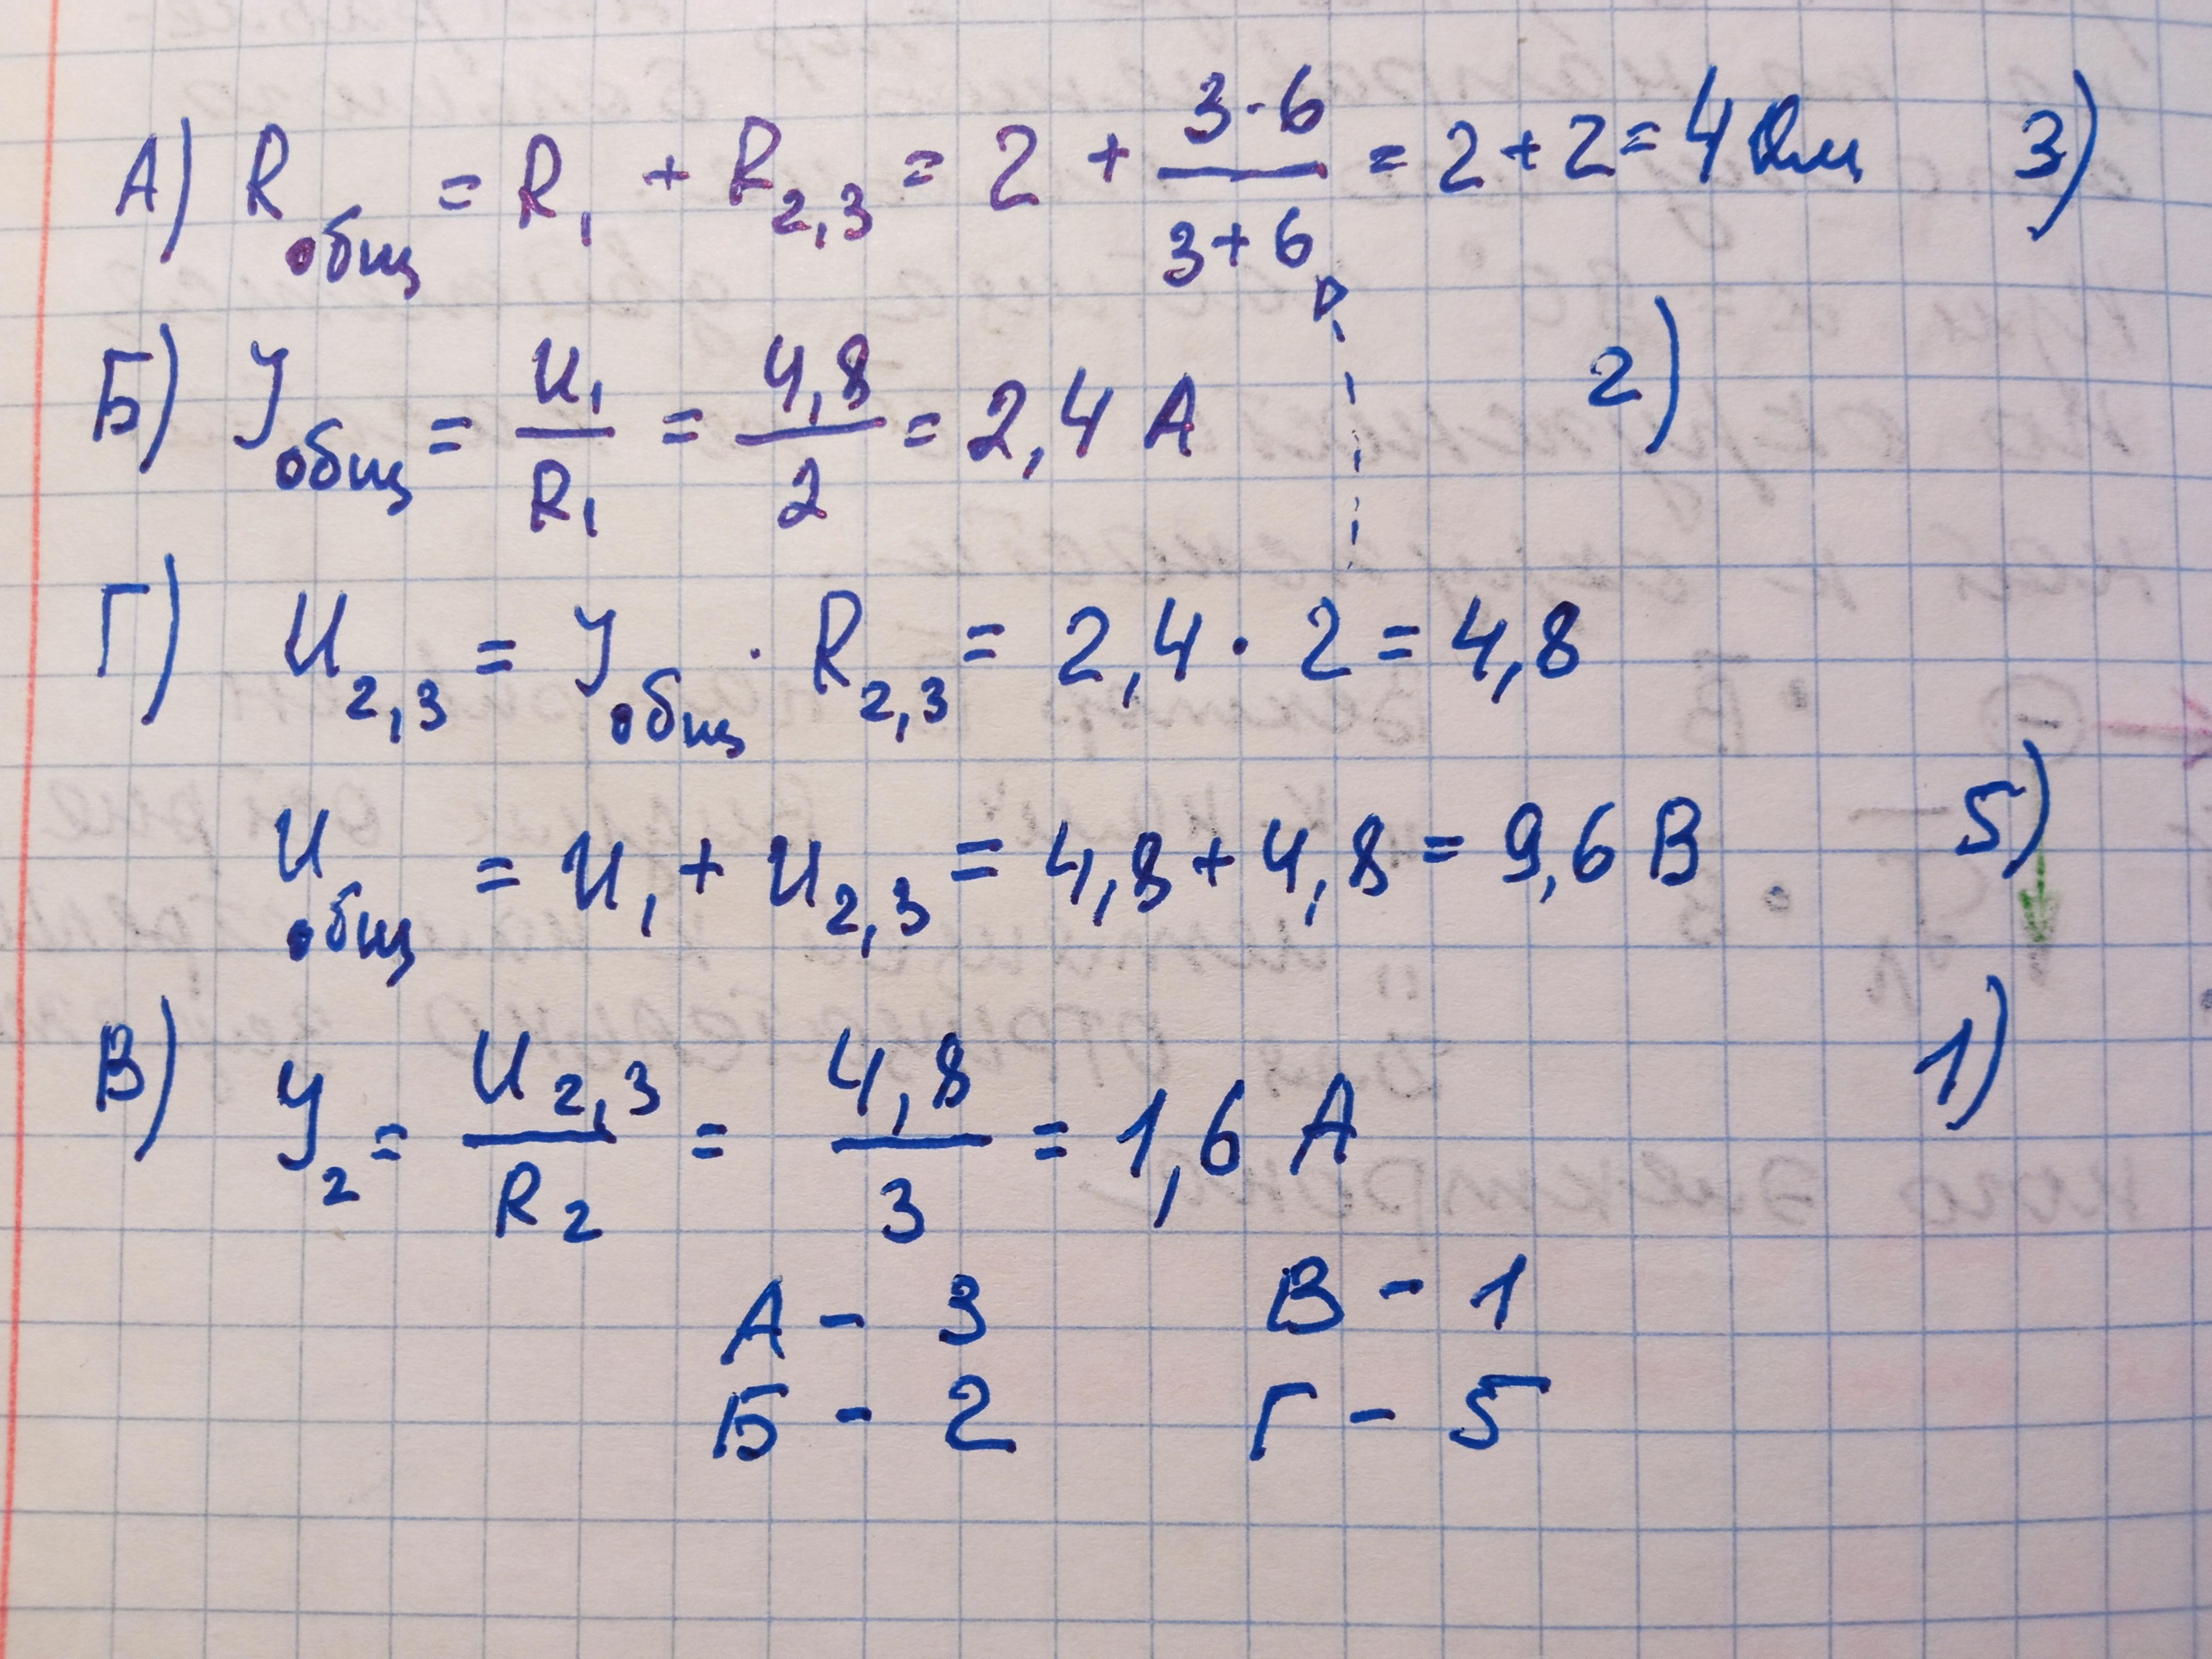 А) R общ = R₁ + R₂,₃ = 2 + (3·6)/(3+6) = 2 + 2 = 4 Ом 3)
Б) У общ = U₁/R₁ = 4,8/2 = 2,4 А 2)
Г) U₂,₃ = У общ · R₂,₃ = 2,4 · 2 = 4,8
U общ = U₁ + U₂,₃ = 4,8 + 4,8 = 9,6 В 5)
В) У₂ = U₂,₃/R₂ = 4,8/3 = 1,6 А 1)
А - 3 В - 1
Б - 2 Г - 5